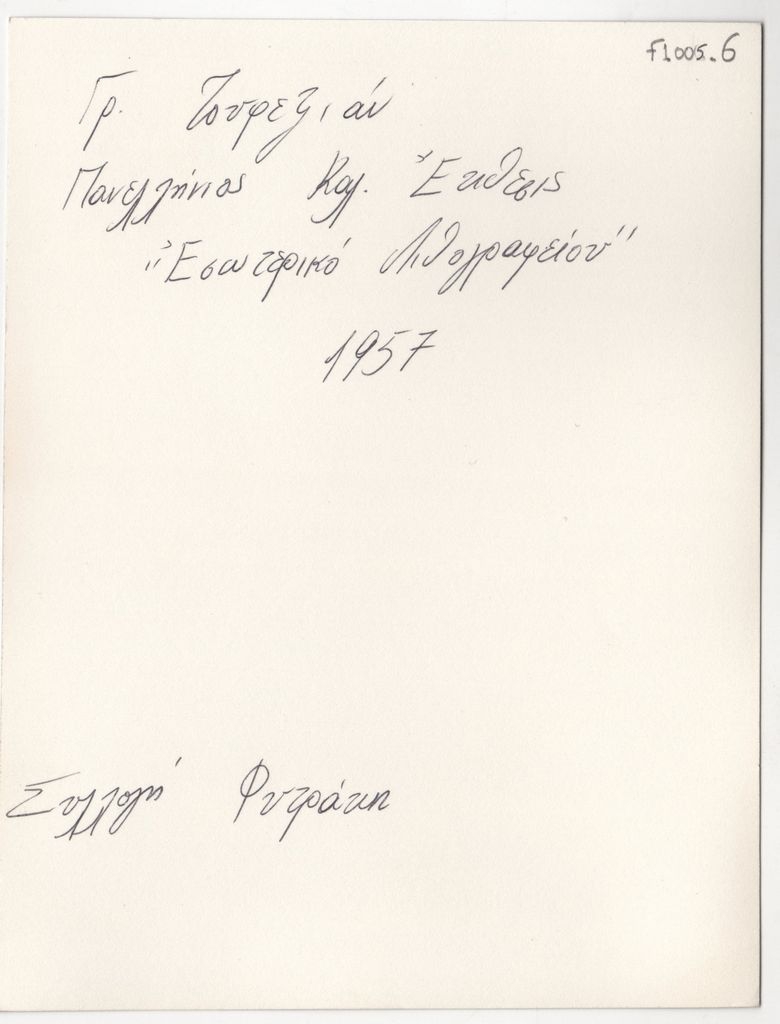 F1005.6
Γρ. Τουφεξιάν
Πανελλήνιος Καλ. Ἔκθεσις
"Ἐσωτερικό Λιθογραφείου"
1957
Συλλογή Φυτράκη